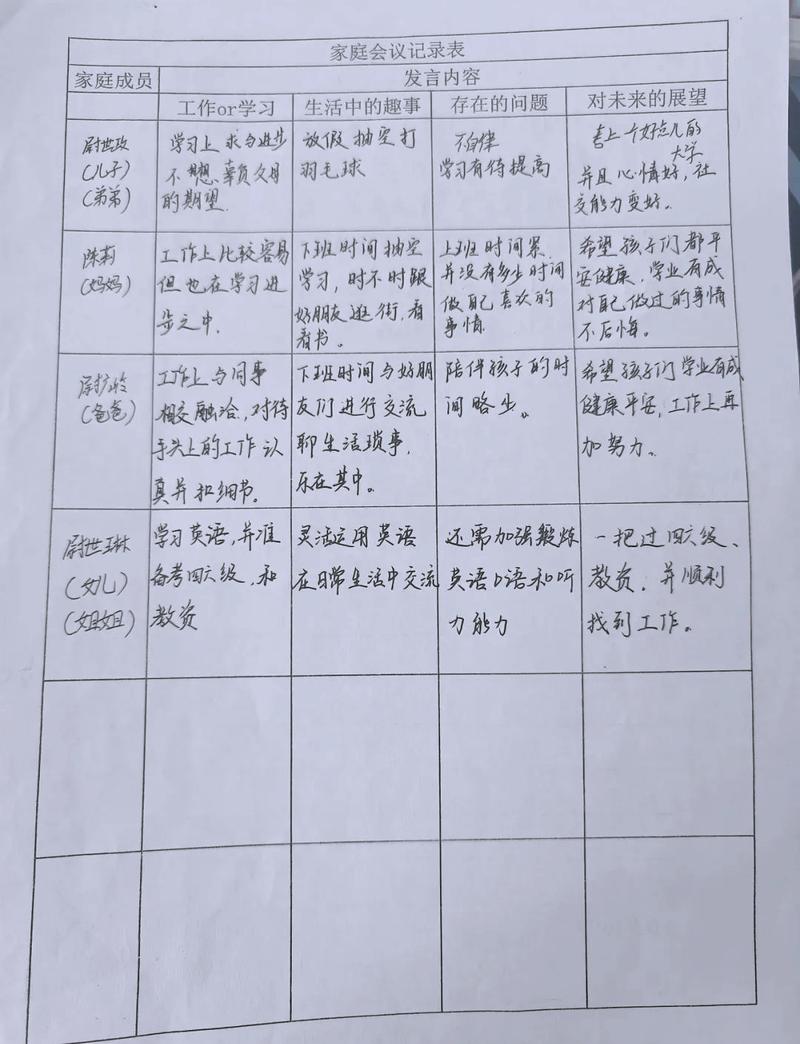 家庭会议记录表
家庭成员
发言内容
工作or学习
生活中的趣事
存在的问题
对未来的展望
尉世玫
(儿子)
(弟弟)
学习上求与进步
不想、辜负父母
的期望.
放假抽空打
羽毛球
不自律
学习有待提高
考上一个好点儿的
大学
并且心情好,社
交能力变好。
陈莉
(妈妈)
工作上比较容易
但也在学习进
步之中.
下班时间抽空
学习,时不时跟
好朋友逛街,看
看书。
上班时间累
并没有多少时间
做自己喜欢的
事情
希望孩子们都平
安健康.学业有成
对自己做过的事情
不后悔。
尉
(爸爸)
工作上与同事
相交融洽,对待
手头上的工作认
真并扣细节。
下班时间与好朋
友们进行交流
聊生活琐事,
乐在其中。
陪伴孩子的时
间略少。
希望孩子们学业有成
健康平安,工作上再
加努力。
尉世琳
(女儿)
(姐姐)
学习英语,并准
备考四六级,和
教资
灵活运用英语
在日常生活中交流
还需加强锻炼
英语口语和听
力能力
一把过四六级、
教资.并顺利
找到工作。